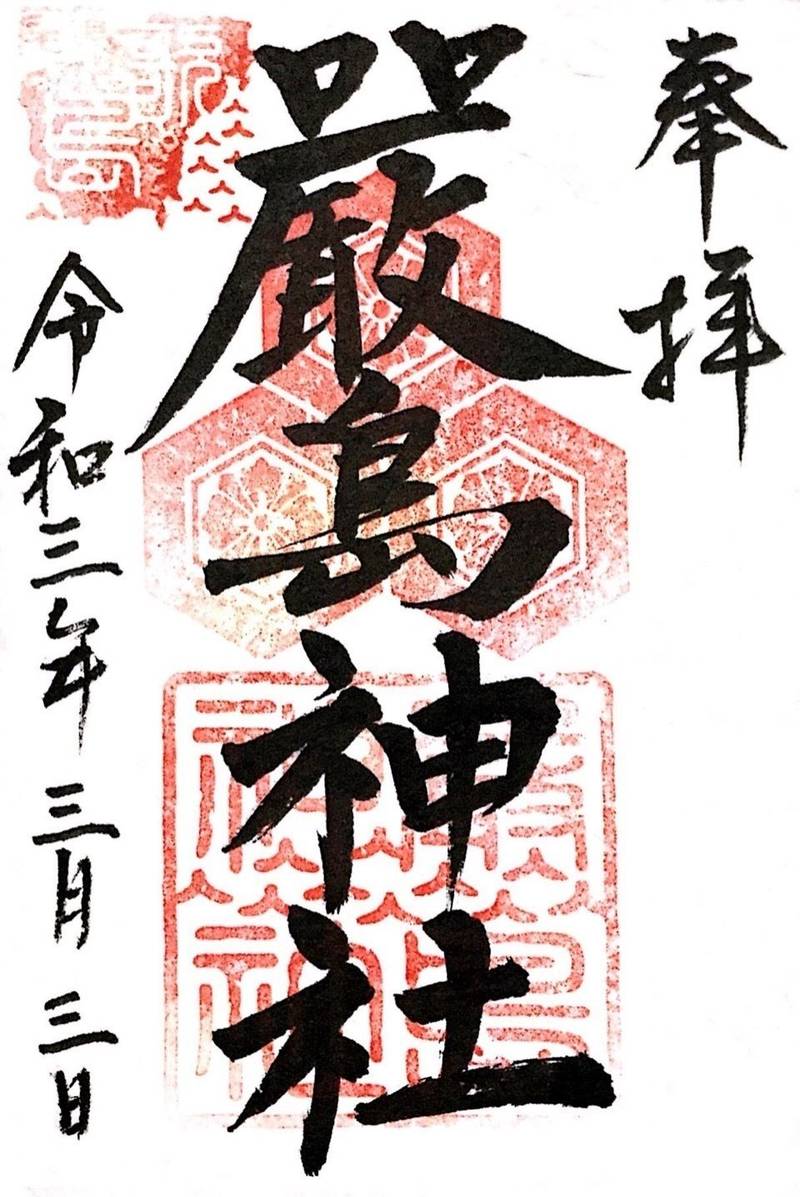 奉拝
厳島神社
令和三年三月三日